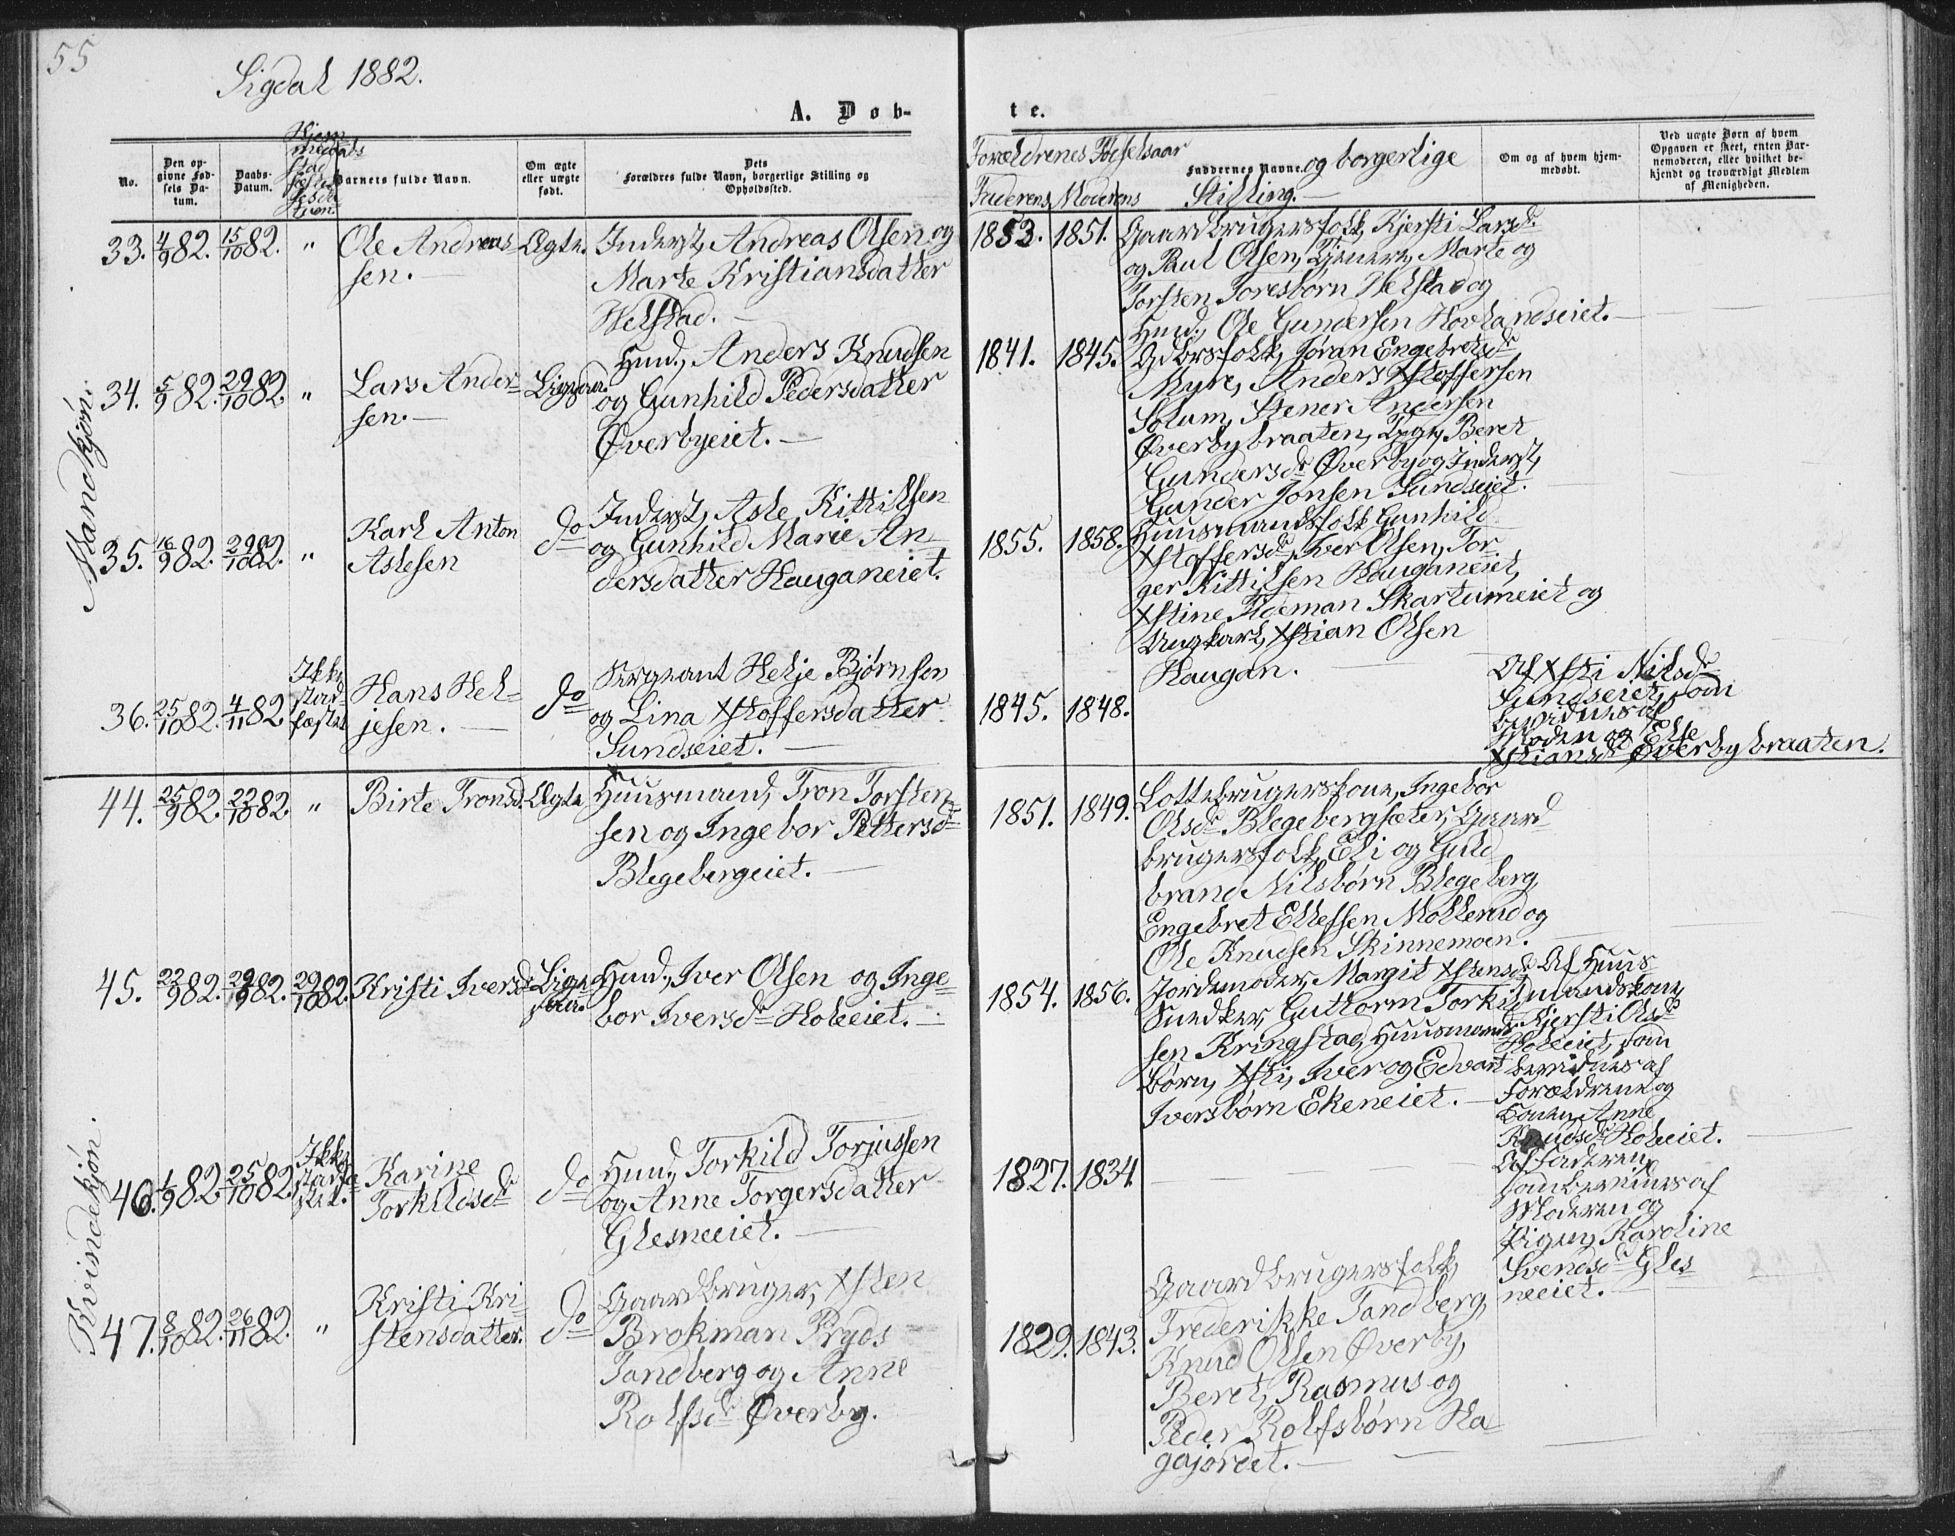 55
Sigdal 1882.
A. Døb-
te.
No.
Den op-
givne Fød-
sels Da-
tum.
Daabs-
Datum.
Hjem
medøbs
Barnets fulde Navn.
Om ægte
eller uægte
født.
Dets
Forældres fulde Navn, borgerlige Stilling og
Opholdssted.
Forældrenes Fødselsaar
Faderens Moderens
Faddernes Navne og borgerlige
Stilling.
Om og af hvem hjem-
medøbt.
Ved uægte Børn af hvem
Opgaven er skeet, enten Bar-
nemoderen, eller hvilket be-
kjendt og troværdigt Medlem
af Menigheden.
Mandkjøn.
33. 4/9 82. 15/10 82. " Ole Andreas-
sen.
Ægte. Inderst, Andreas Olsen og
Marte Kristiansdatter
Helstad.
1853. 1851. Gaardbrugersfolk, Kjersti Larsdr
og Paul Olsen, Tjenere, Marte og
Torsten Toresbørn Helstad og
Husd., Ole Gundersen Hovlandseiet.
34. 5/9 82. 29/10 82. " Lars Ander-
sen.
Ligesaa. Husd., Anders Knudsen
og Gunhild Pedersdatter
Øverbyeiet.
1841. 1845. Gdbrsfolk, Jøran Engebretsdr
Myre, Anders Xstoffersen
Solum, Stener Andersen
Øverbybraaten, Pige, Beret
Gundersdr Øverby og Inderst,
Gunder Jonsen Sundseiet.
35. 16/9 82. 29/10 82. " Karl Anton
Aslesen
do Inderst, Asle Kittilsen
og Gunhild Marie An-
dersdatter Hauganeiet.
1855. 1858. Huusmandsfolk Gunhild
Xstoffersdr, Iver Olsen, Tor-
ger Kittilsen Hauganeiet,
Xstine Tideman Skartumeiet og
Ungkarl, Xstian Olsen
Haugan.
36. 25/10 82. 4/11 82. Ikke
stad-
fæstet
Hans Hel-
jesen.
do Sergeant Helje Bjørnsen
og Lina Xstoffersdatter
Sundseiet.
1845. 1848.
Af Xsti Nilsdr
Sundseiet, som
bevidnes af
Moderen og Else
Xstiansdr Øverbybraaten.
Kvindekjøn.
44. 25/9 82. 22/10 82. " Birte Tronsdr Ægte, Huusmand, Tron Torsten-
sen og Ingebor Pettersdr
Blegebergeiet.
1851. 1849. Lottebrugerskone, Ingebor
Olsdr Blegebergsæter, Gaard-
brugersfolk, Eli og Guld-
brand Nilsbørn Blegeberg,
Engebret Ellefsen Mollerud og
Ole Knudsen Skinnemoen.
45. 22/9 82. 29/10 82. 29/10 82. Kristi Iversdr Lige-
saa. Husd., Iver Olsen og Inge-
bor Iversdr Holeeiet.
1854. 1856. Jordemoder, Margit Xstensdr
Snedker, Guttorm Torkild-
sen Kringstad, Huusmands-
børn, Xsti, Iver og Edvart
Iversbørn Ekeneiet.
Af Huus-
mandskone,
Kjersti Olsdr
Holeeiet, som
bevidnes af
Forældrene og
Konen, Anne
Knudsdr Holeeiet.
46. 1/9 82. 25/10 82. Ikke
Karine
Torkildsdr
do Husd., Torkild Torjussen
og Anne Torgersdatter
Glesneeiet.
1827. 1834.
Af Faderen,
som bevidnes af
Moderen og
Pigen, Karoline
Svendsdr Gles-
neeiet.
47. 8/10 82. 26/11 82. " Kristi Kri-
stensdatter.
do Gaardbruger, Xsten
Brokman Pryds
Tandberg og Anne
Rolfsdr Øverby.
1829. 1843. Gaardbrugersfolk,
Frederikke Tandberg,
Knud Olsen Øverby,
Beret, Rasmus og
Peder Rolfsbørn Ha-
gajordet.